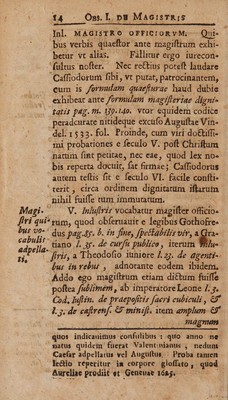 14 OBS. I. DE MAGISTRIS
Inl. MAGISTRO OFFICIORVM. Qui-
bus verbis quaestor ante magistrum exhi-
betur vt alias. Fallitur ergo iurecon-
sultus noster. Nec rectius potest laudare
Cassiodorum sibi, vt putat, patrocinantem,
cum is formulam quaesturae haud dubie
exhibeat ante formulam magisteriae digni-
tatis pag. m. 139. 140. vtor equidem codice
peradcurate nitideque excuso Augustae Vin-
del. 1533. fol. Proinde, cum viri doctissi-
mi probationes e seculo V. post Christum
natum sint petitae, nec eae, quod lex no-
bis reperta docuit, sat firmae; Cassiodorus
autem testis sit e seculo VI. facile consi-
terit, circa ordinem dignitatum istarum
nihil fuisse tum immutatum.
Magi-
stri qui-
bus vo-
cabulis
adpella-
ti.
V. Inlustris vocabatur magister officio-
rum, quod obseruauit e legibus Gothofre-
dus pag. 85. b. in fine, spectabilis vir, a Gra-
tiano l. 35. de cursu publico, iterum inlu-
stris, a Theodosio iuniore l. 23. de agenti-
bus in rebus, adnotante eodem ibidem.
Addo ego magistrum etiam dictum fuisse
postea sublimem, ab imperatore Leone l. 3.
Cod. Iustin. de praepositis sacri cubiculi, &
l. 3. de castrens. & minist. item amplum &
magnum
quos indicauimus consulibus: quo anno ne
natus quidem fuerat Valentinianus, nedum
Caesar adpellatus vel Augustus. Proba tamen
lectio reperitur in corpore glossato, quod
Aureliae prodiit et Geneuae 1625.